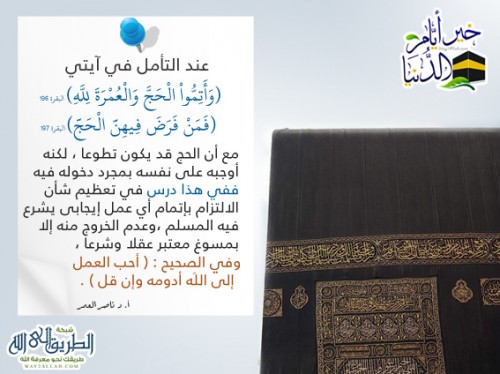 خير أيام
الدنيا
عند التأمل في آيتي
(وَأَتِمُّواْ الْحَجَّ وَالْعُمْرَةَ لِلّهِ) البقرة 196
(فَمَن فَرَضَ فِيهِنَّ الْحَجَّ) البقرة 197
مع أن الحج قد يكون تطوعا ، لكنه
أوجبه على نفسه بمجرد دخوله فيه
ففي هذا درس في تعظيم شأن
الالتزام بإتمام أي عمل إيجابى يشرع
فيه المسلم ،وعدم الخروج منه إلا
بمسوغ معتبر عقلا وشرعا ،
وفي الصحيح : ( أحب العمل
إلى الله أدومه وإن قل ) .
أ. د ناصر العمر
شبكة
الطريق إلى الله
طريقك نحو معرفة الله
WAY2ALLAH.COM